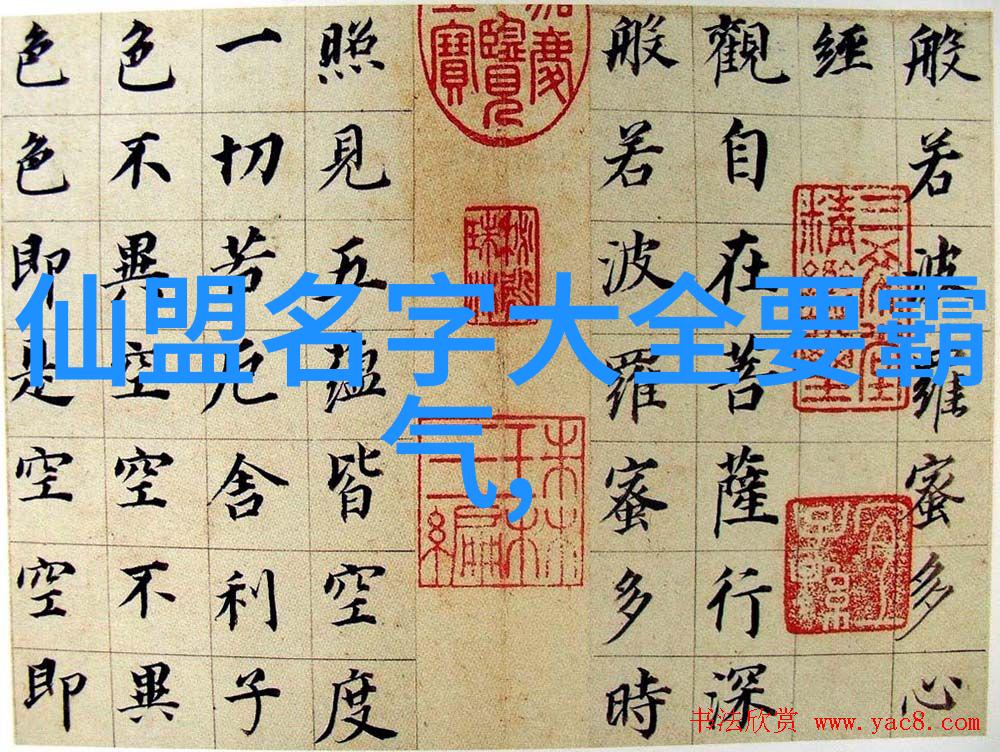 般若波羅蜜多心
經
觀自在菩薩行深
般若波羅蜜多時
照見五蘊皆空度
一切苦厄舍利子
色不異空空不異
色色即是空空即
三希堂精鑑璽
仙盟名字大全要霸
气,
书法欣赏 www.yac8.com